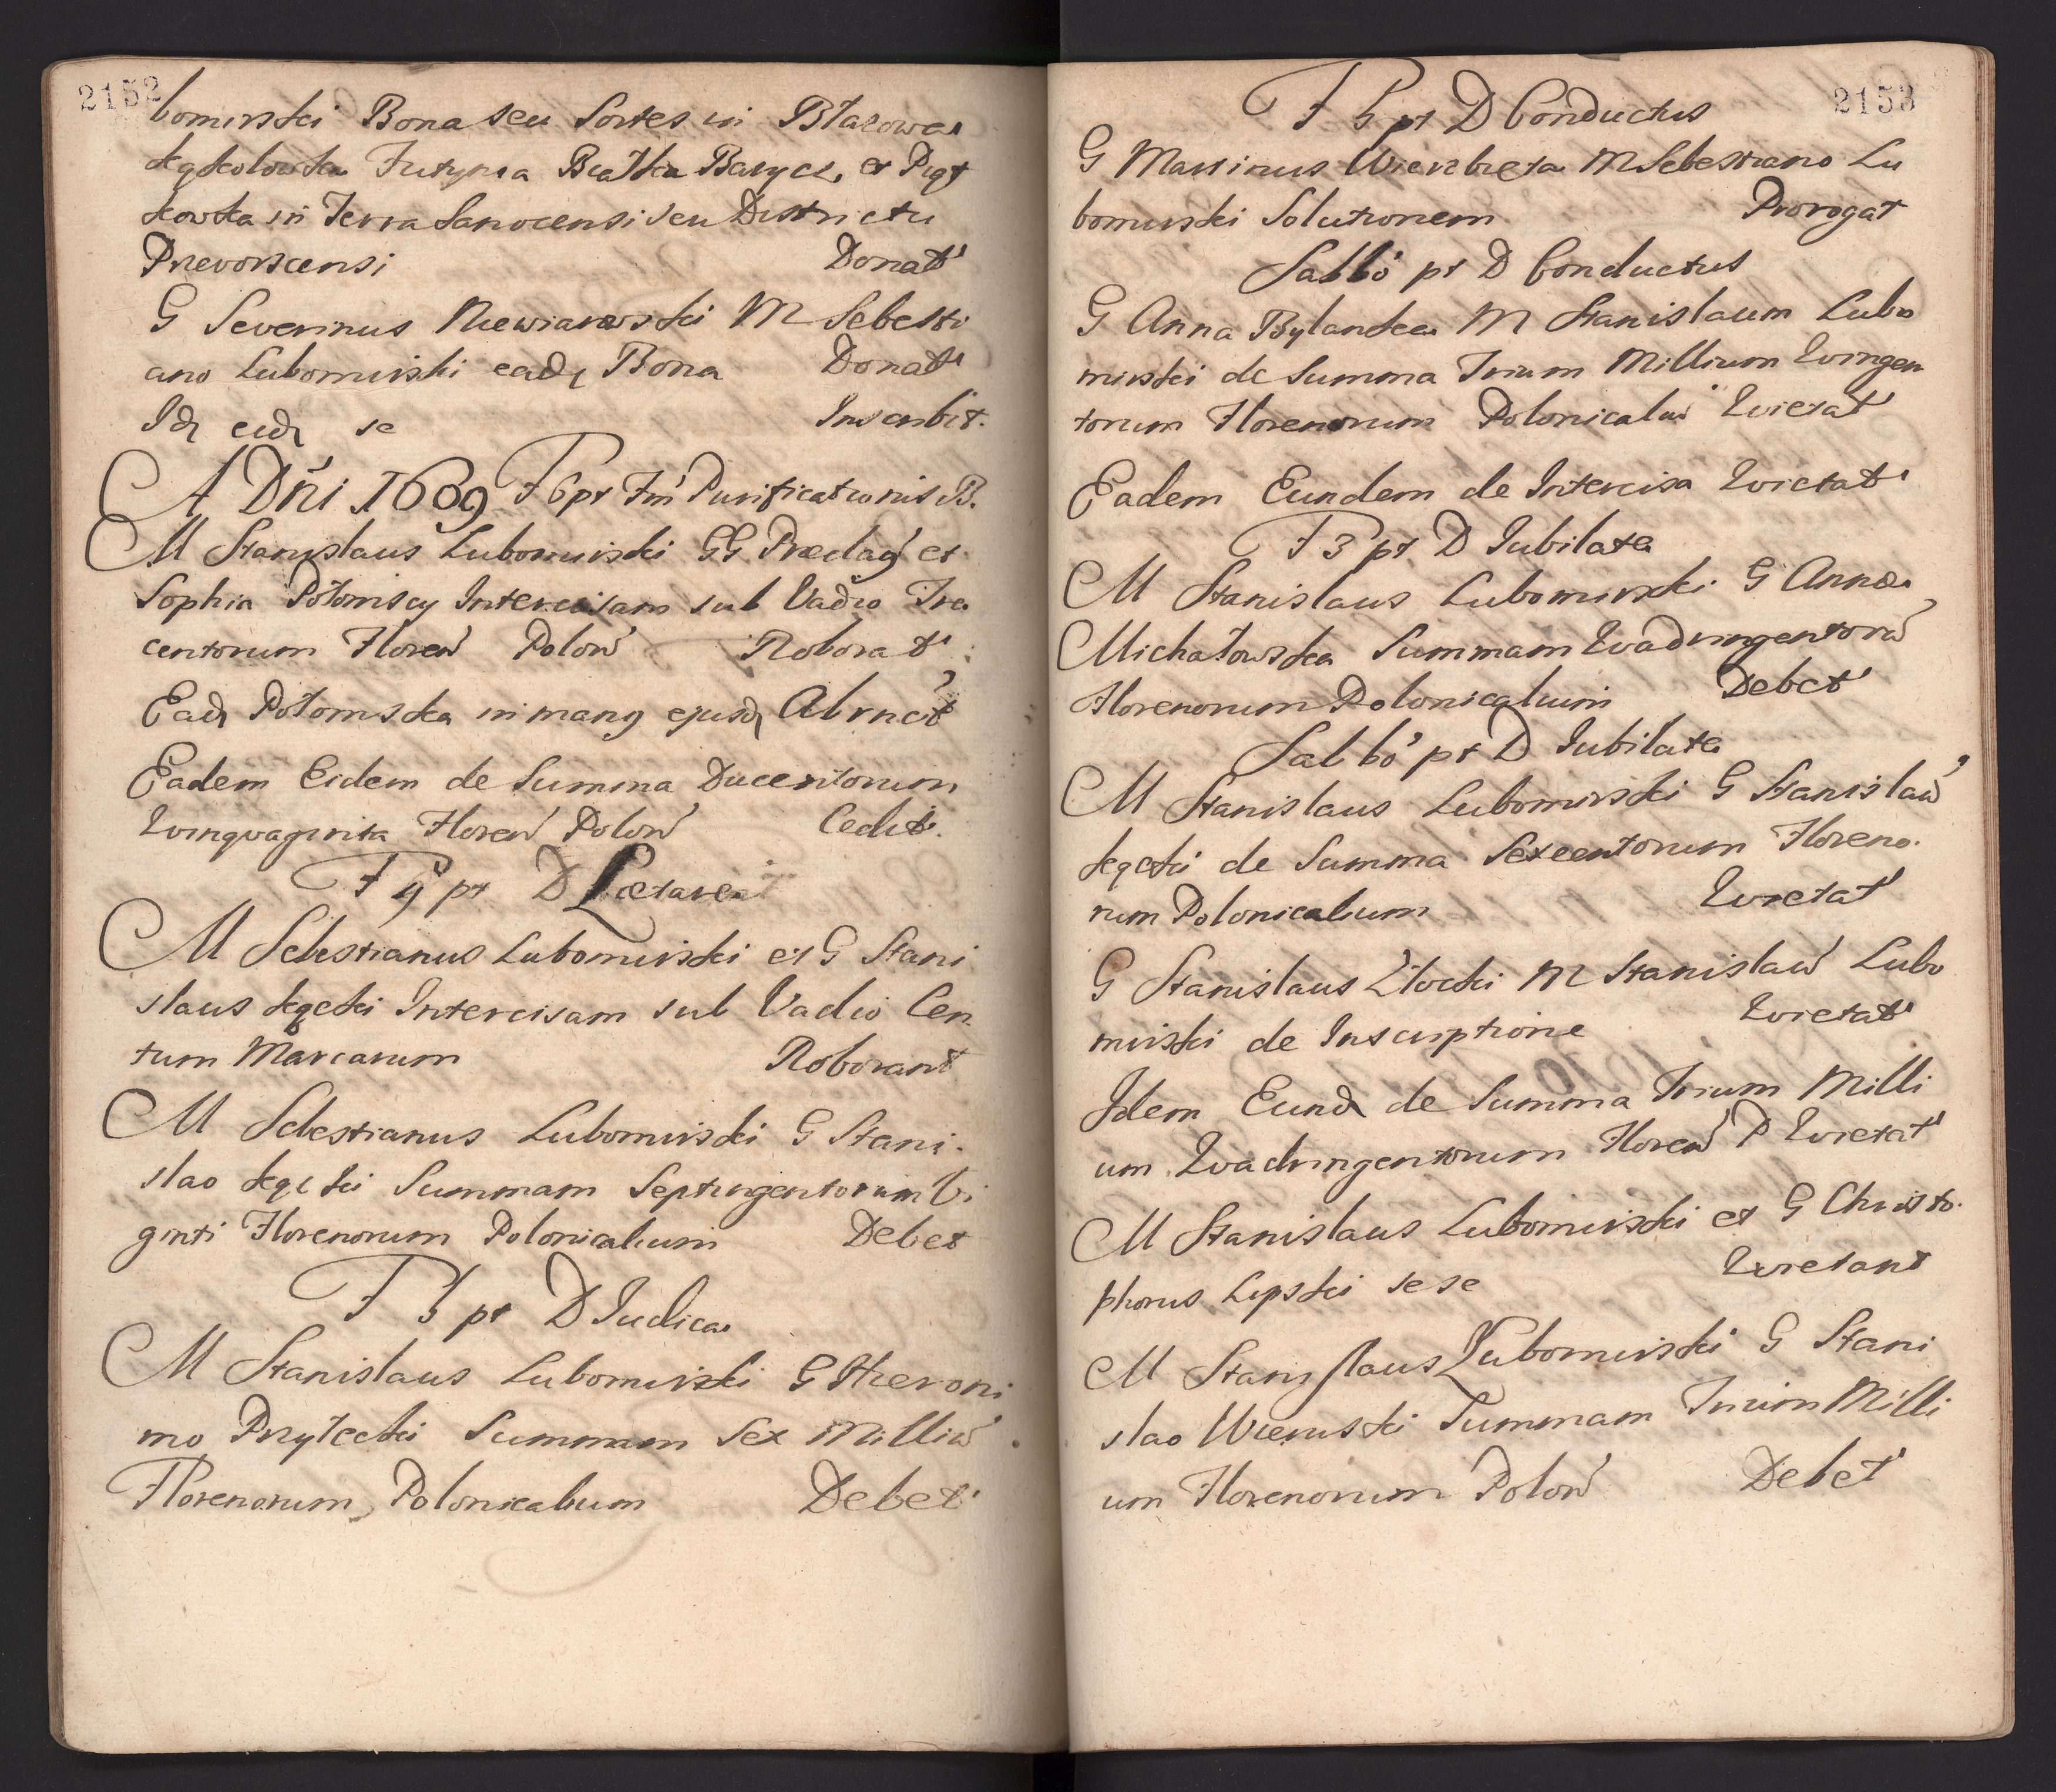 2152
bomirski Bona seu Sortes in Błazowa
Kąkolowka Futyma Białka Barycz, et Piąt
kowka in Terra Sanocensi seu Districtu
Przevorscensi Donat
G Severinus Niewiarowski M Sebesti
ano Lubomirski eadq Bona Donat
Idq eidq se Inscribit.
A Dñi 1609 F 6 pt Fm Purificationis B.
M Stanyslaus Lubomirski GG Predag et
Sophia Potomscy Intercisam sub Vadio Tre
centorum Floren Polon Roborat
Eadq Potomska in manq ejusdq Abrnct
Eadem Eidem de Summa Ducentorum
Qvinqvaginta Floren Polon Cedit.
F 4 pt D Lætare
M Sebestianus Lubomirski et G Stani
slaus Kęcki Intercisam sub Vadio Cen
tum Marcarum Roborant
M Sebestianus Lubomirski G Stani.
slao Kęcki Summam Septingentorum Vi
ginti Florenorum Polonicalium Debet
F 3 pt D Iudica
M Stanislaus Lubomirski G Hieroni
mo Przyłecki Summam Sex Milliu
Florenorum Polonicalium Debet
2153
F 5 pt D Conductus
G Martinus Wierzbieta M Sebestiano Lu
bomirski Solutionem Prorogat
Sabbo pt D Conductus
G Anna Bylanska M Stanislaum Lubo
mirski de Summa Trium Millium Qvingen
torum Florenorum Polonicaliu Qvietat
Eadem Eundem de Intercisa Qvietat
F 3 pt D Iubilate
M Stanislaus Lubomirski G Annæ
Michałowska Summam Qvadringentoru
Florenorum Polonicalium Debet
Sabbo pt D Iubilate
M Stanislaus Lubomirski G Stanislau
Kęcki de Summa Sexcentorum Floreno.
rum Polonicalium Qvietat
G Stanislaus Złocki M Stanislau Lubo
mirski de Inscriptione Qvietat
Idem Eundq de Summa Trium Milli
um Qvadringentorum Floren P Qvietat
M Stanislaus Lubomirski et G Christo.
phorus Lipski sese Qvietant
M Stanyslaus Lubomirski G Stani
slao Wieruski Summam Trium Milli
um Florenorum Polon Debet